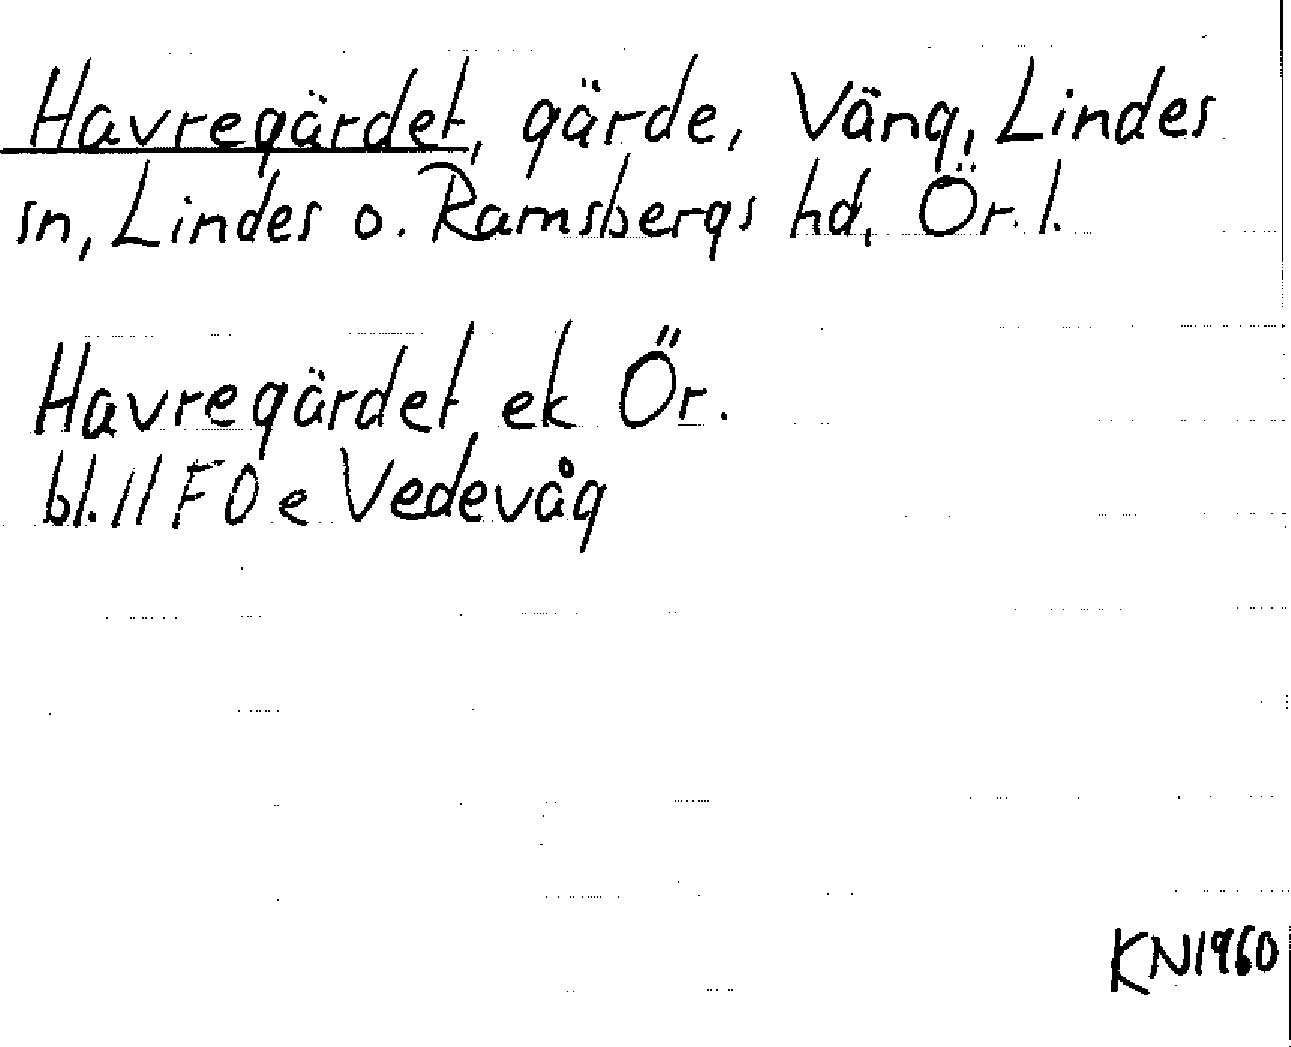 Havregärdet, gärde, Väng, Lindes
sn, Lindes o. Ramsbergs hd, Ör. l.
Havregärdet ek Ör.
bl. 11 F0e Vedevåg
KN1960